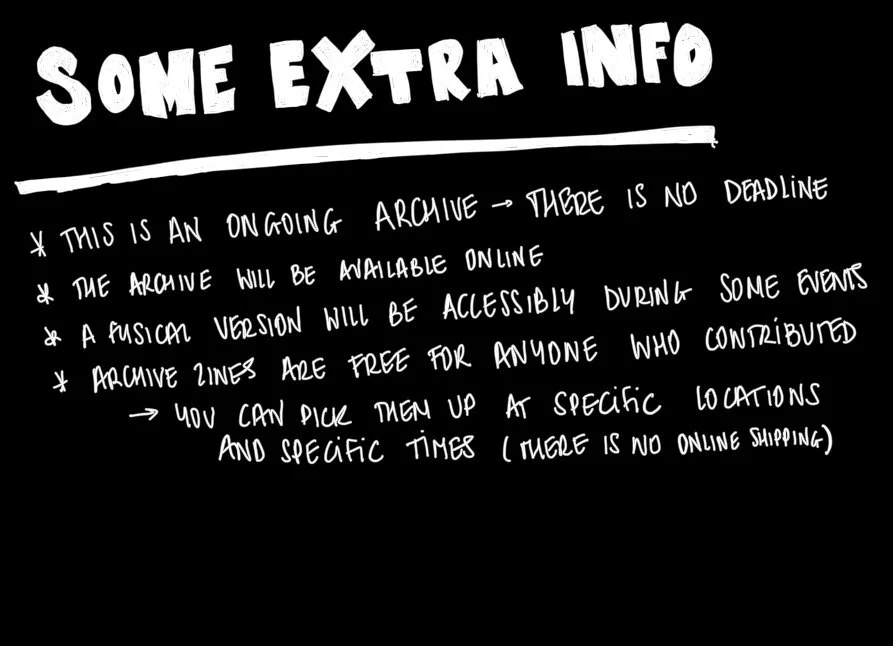 SOME EXTRA INFO
* THIS IS AN ONGOING ARCHIVE → THERE IS NO DEADLINE
* THE ARCHIVE WILL BE AVAILABLE ONLINE
* A FUSICAL VERSION WILL BE ACCESSIBLY DURING SOME EVENTS
* ARCHIVE ZINES ARE FREE FOR ANYONE WHO CONTRIBUTED
→ YOU CAN PICK THEM UP AT SPECIFIC LOCATIONS
AND SPECIFIC TIMES (THERE IS NO ONLINE SHIPPING)